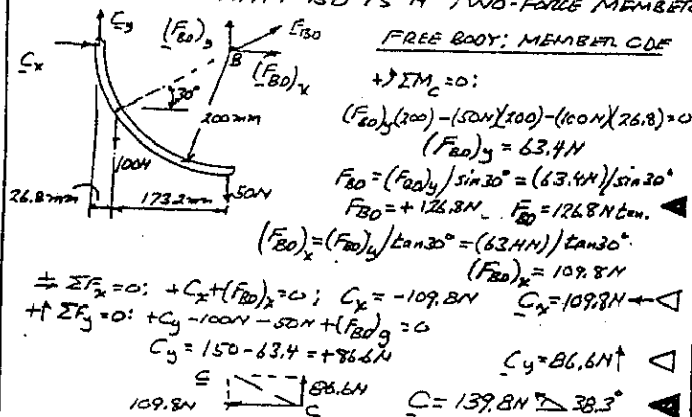 BD IS A TWO-FORCE MEMBER
FREE BODY: MEMBER CDE
C_y
(F_BD)_y
F_BD
C_x
B
(F_BD)_x
30°
200 mm
100N
50N
26.8mm
173.2mm
+↶ΣM_C=0:
(F_BD)_y(200)-(50N)(200)-(100N)(26.8)=0
(F_BD)_y = 63.4N
F_BD=(F_BD)_y/sin30°=(63.4N)/sin30°
F_BD=+126.8N F_BD=126.8N ten. ◀
(F_BD)_x=(F_BD)_y/tan30°=(63.4N)/tan30°
(F_BD)_x=109.8N
+→ ΣF_x=0: +C_x+(F_BD)_x=0; C_x=-109.8N C_x=109.8N← ◁
+↑ ΣF_y=0: +C_y-100N-50N+(F_BD)_y=0
C_y=150-63.4=+86.6N C_y=86.6N↑ ◁
C
86.6N
109.8N
C
C=139.8N 38.3° ◀